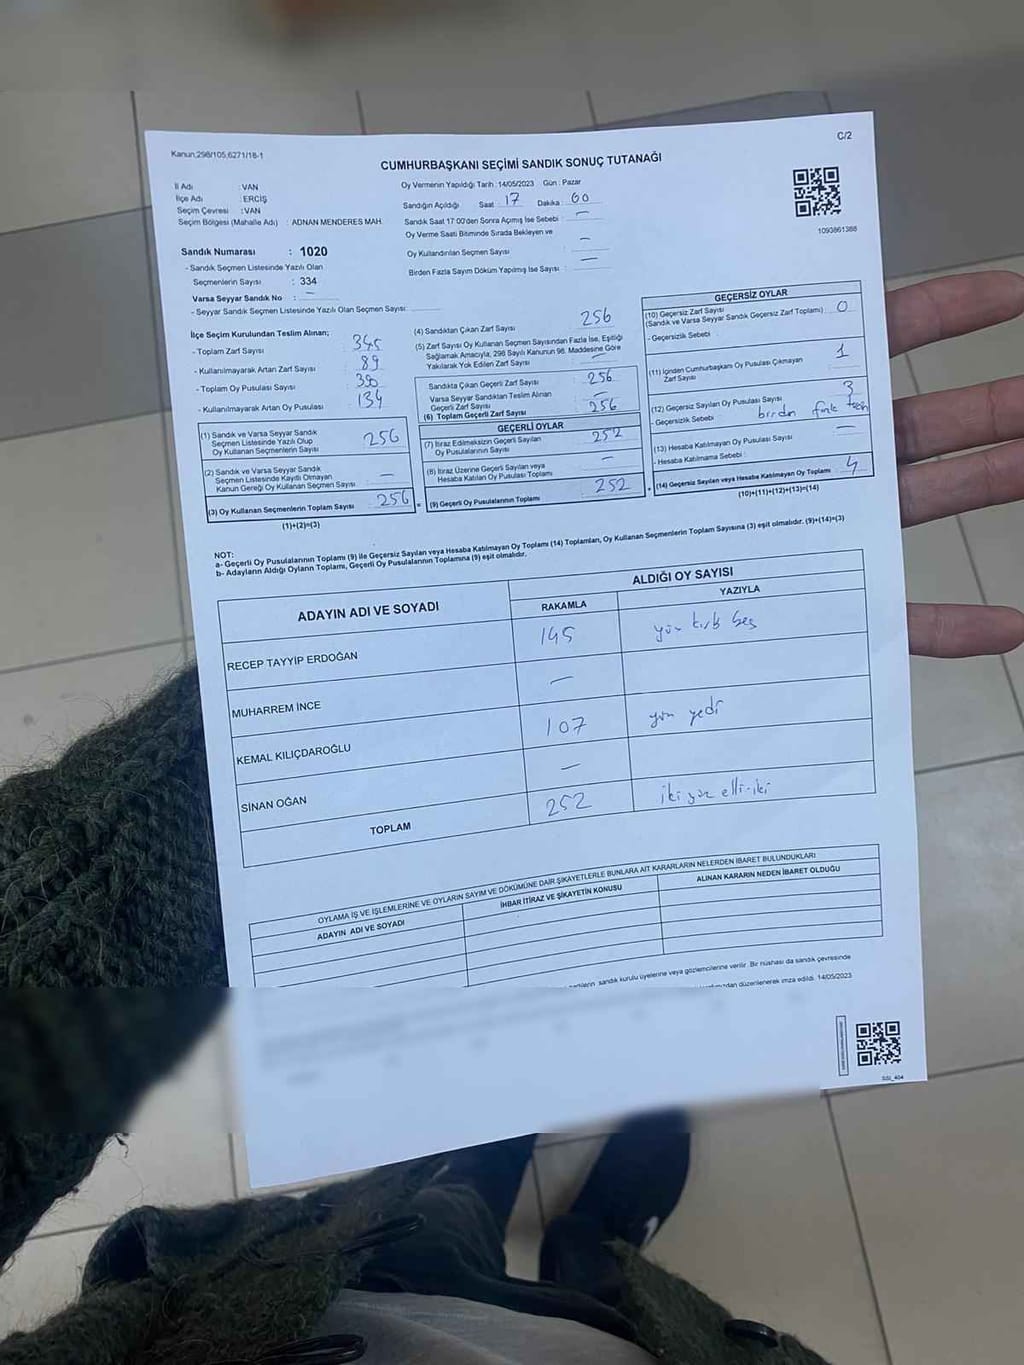 C/2
Kanun,298/105,6271/18-1
CUMHURBAŞKANI SEÇİMİ SANDIK SONUÇ TUTANAĞI
İl Adı : VAN
İlçe Adı : ERCİŞ
Seçim Çevresi : VAN
Seçim Bölgesi (Mahalle Adı) : ADNAN MENDERES MAH.
Sandık Numarası : 1020
- Sandık Seçmen Listesinde Yazılı Olan
Seçmenlerin Sayısı : 334
Varsa Seyyar Sandık No : —
- Seyyar Sandık Seçmen Listesinde Yazılı Olan Seçmen Sayısı:
Oy Vermenin Yapıldığı Tarih :14/05/2023 Gün : Pazar
Sandığın Açıldığı Saat 17 Dakika 00
Sandık Saat 17:00'den Sonra Açılmış İse Sebebi : —
Oy Verme Saati Bitiminde Sırada Bekleyen ve
Oy Kullandırılan Seçmen Sayısı —
Birden Fazla Sayım Döküm Yapılmış İse Sayısı : —
1093861388
İlçe Seçim Kurulundan Teslim Alınan;
- Toplam Zarf Sayısı : 345
- Kullanılmayarak Artan Zarf Sayısı : 89
- Toplam Oy Pusulası Sayısı : 390
- Kullanılmayarak Artan Oy Pusulası : 134
(1) Sandık ve Varsa Seyyar Sandık
Seçmen Listesinde Yazılı Olup
Oy Kullanan Seçmenlerin Sayısı 256
(2) Sandık ve Varsa Seyyar Sandık
Seçmen Listesinde Kayıtlı Olmayan
Kanun Gereği Oy Kullanan Seçmen Sayısı : —
(3) Oy Kullanan Seçmenlerin Toplam Sayısı : 256
(1)+(2)=(3)
(4) Sandıktan Çıkan Zarf Sayısı 256
(5) Zarf Sayısı Oy Kullanan Seçmen Sayısından Fazla İse, Eşitliği
Sağlamak Amacıyla; 298 Sayılı Kanunun 98. Maddesine Göre
Yakılarak Yok Edilen Zarf Sayısı : —
Sandıkta Çıkan Geçerli Zarf Sayısı : 256
Varsa Seyyar Sandıktan Teslim Alınan
Geçerli Zarf Sayısı —
(6) Toplam Geçerli Zarf Sayısı : 256
GEÇERLİ OYLAR
(7) İtiraz Edilmeksizin Geçerli Sayılan
Oy Pusulalarının Sayısı : 252
(8) İtiraz Üzerine Geçerli Sayılan veya
Hesaba Katılan Oy Pusulası Toplamı : —
= (9) Geçerli Oy Pusulalarının Toplamı : 252
GEÇERSİZ OYLAR
(10) Geçersiz Zarf Sayısı
(Sandık ve Varsa Seyyar Sandık Geçersiz Zarf Toplamı) : 0
- Geçersizlik Sebebi
(11) İçinden Cumhurbaşkanı Oy Pusulası Çıkmayan
Zarf Sayısı 1
(12) Geçersiz Sayılan Oy Pusulası Sayısı 3
- Geçersizlik Sebebi : birden fazla
(13) Hesaba Katılmayan Oy Pusulası Sayısı —
- Hesaba Katılmama Sebebi :
+ (14) Geçersiz Sayılan veya Hesaba Katılmayan Oy Toplamı : 4
(10)+(11)+(12)+(13)=(14)
NOT:
a- Geçerli Oy Pusulalarının Toplamı (9) ile Geçersiz Sayılan veya Hesaba Katılmayan Oy Toplamı (14) Toplamları, Oy Kullanan Seçmenlerin Toplam Sayısına (3) eşit olmalıdır. (9)+(14)=(3)
b- Adayların Aldığı Oyların Toplamı, Geçerli Oy Pusulalarının Toplamına (9) eşit olmalıdır.
ADAYIN ADI VE SOYADI ALDIĞI OY SAYISI
RAKAMLA YAZIYLA
RECEP TAYYİP ERDOĞAN 145 yüz kırk beş
MUHARREM İNCE —
KEMAL KILIÇDAROĞLU 107 yüz yedi
SİNAN OĞAN —
TOPLAM 252 iki yüz elli iki
OYLAMA İŞ VE İŞLEMLERİNE VE OYLARIN SAYIM VE DÖKÜMÜNE DAİR ŞİKAYETLERLE BUNLARA AİT KARARLARIN NELERDEN İBARET BULUNDUKLARI
ADAYIN ADI VE SOYADI İHBAR İTİRAZ VE ŞİKAYETİN KONUSU ALINAN KARARIN NEDEN İBARET OLDUĞU
sandık kurulu üyelerine veya gözlemcilerine verilir. Bir nüshası da sandık çevresinde
düzenlenerek imza edildi. 14/05/2023